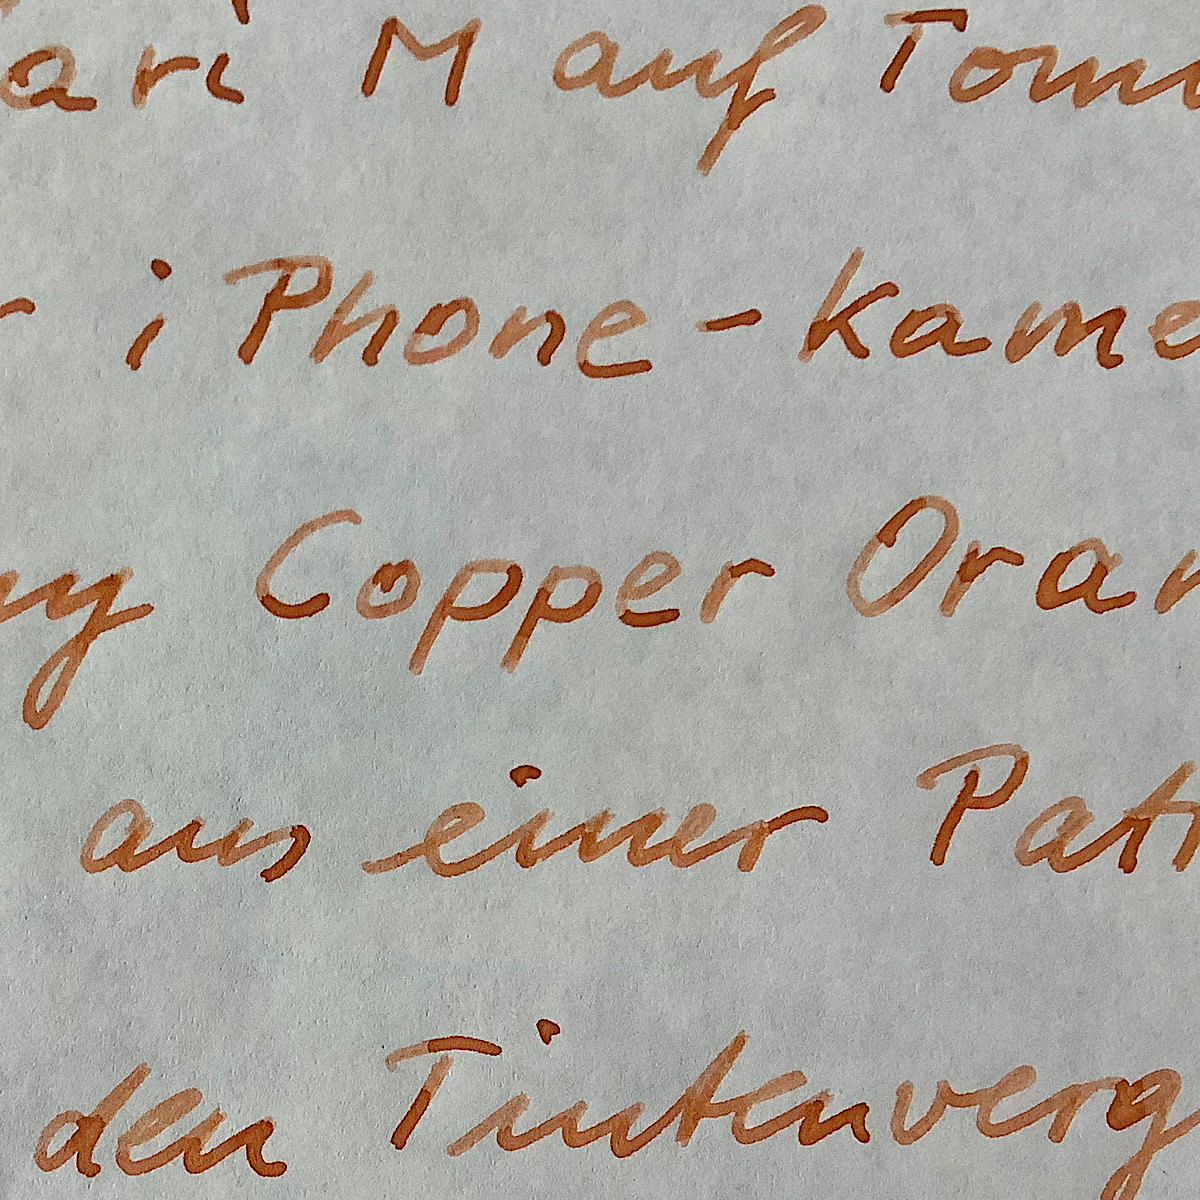 ari M auf Tom
iPhone-Kame
y Copper Oran
aus einer Pat
den Tintenverg